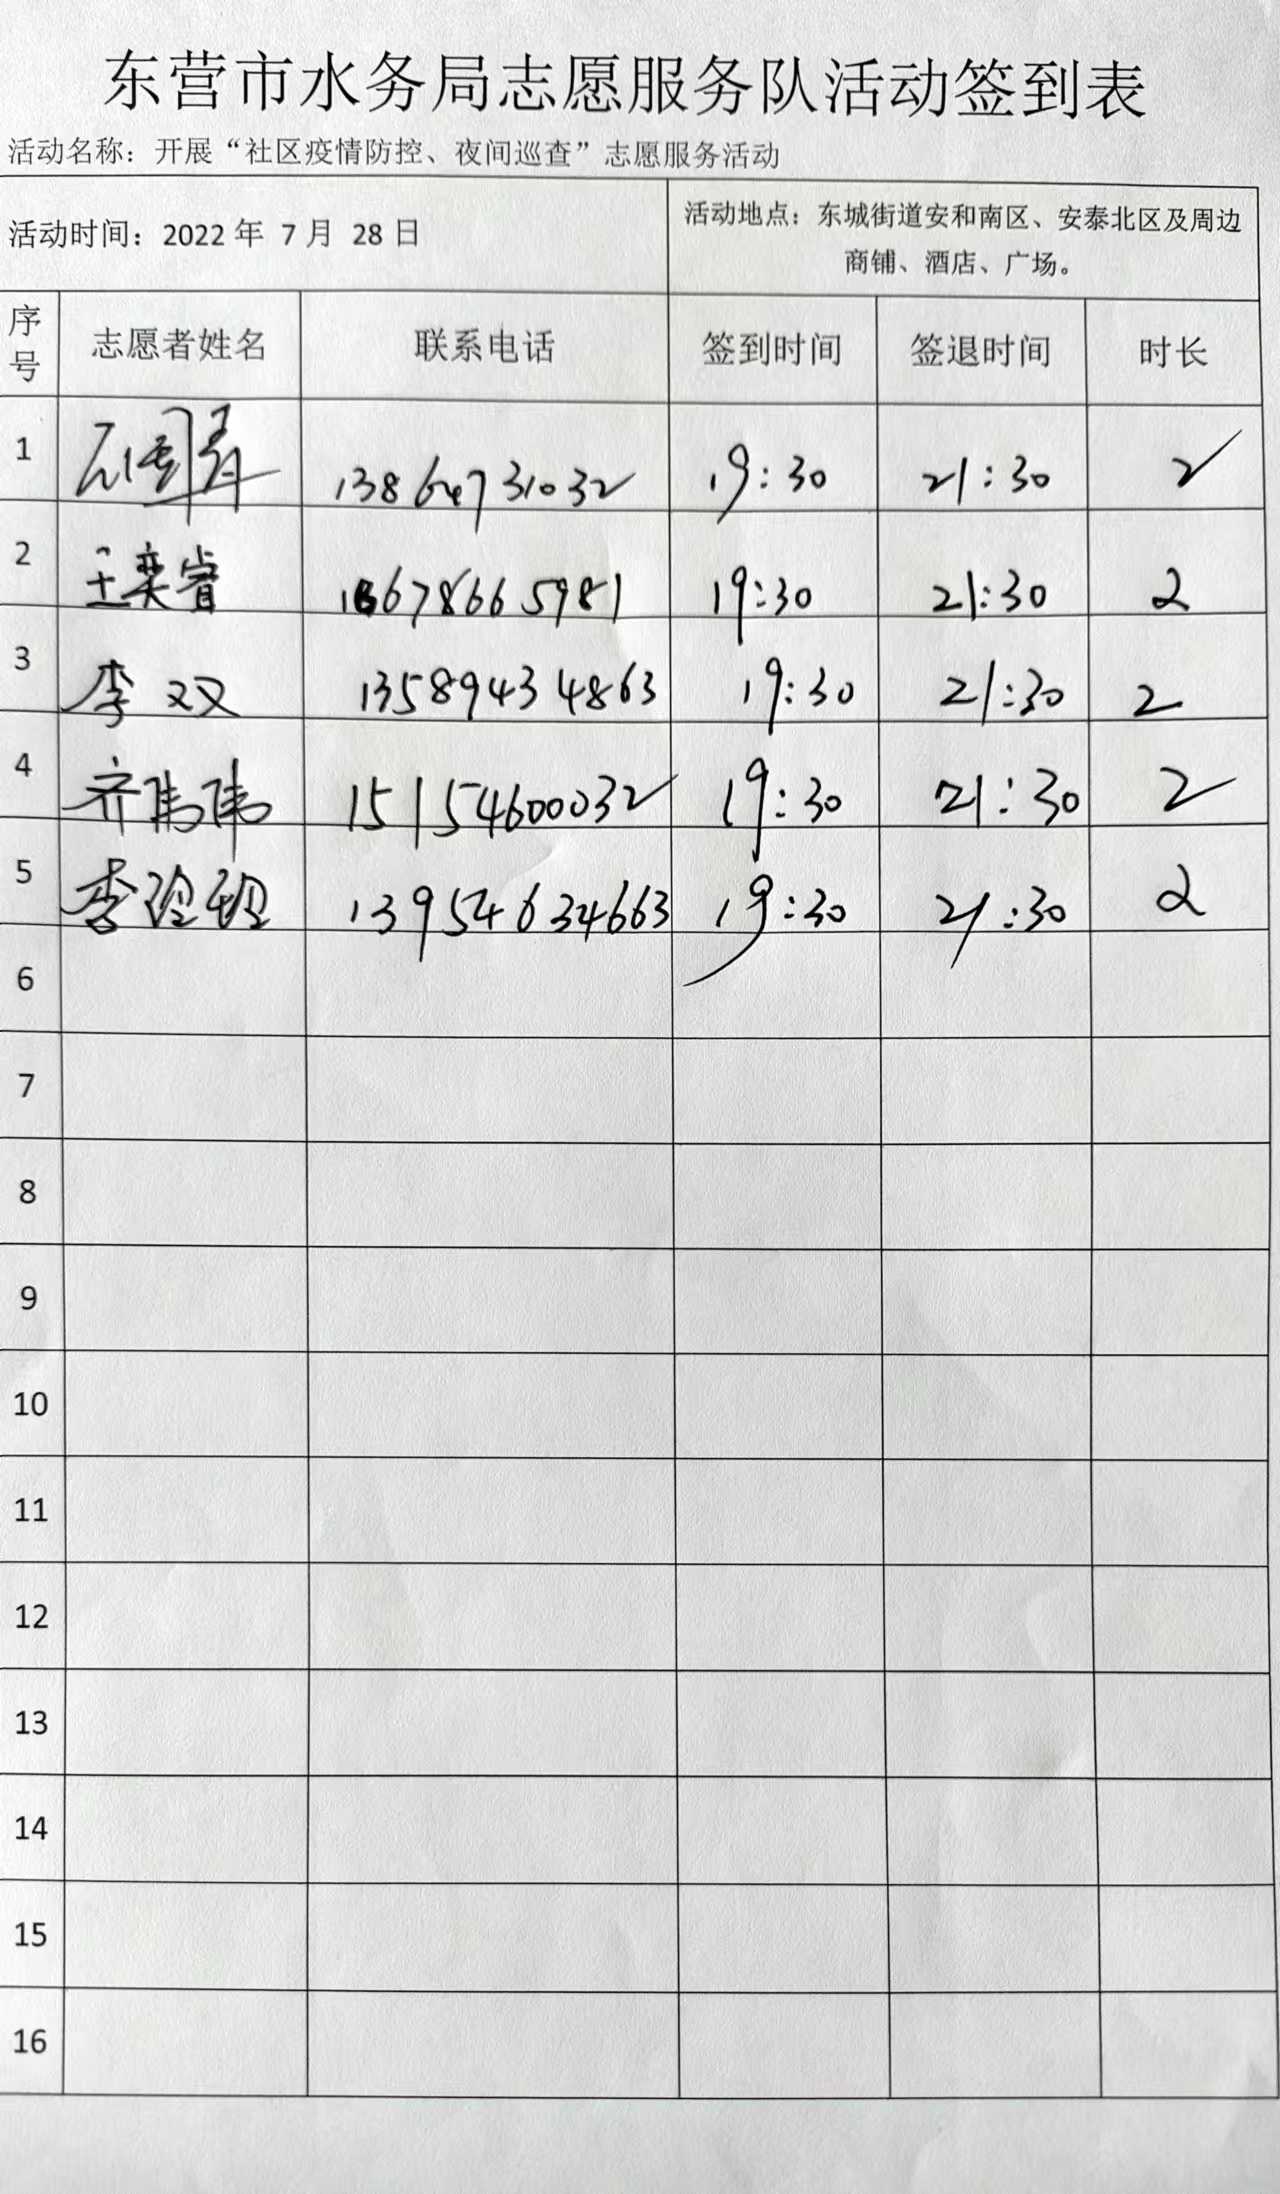 东营市水务局志愿服务队活动签到表
活动名称：开展“社区疫情防控、夜间巡查”志愿服务活动
活动时间：2022 年 7 月 28 日
活动地点：东城街道安和南区、安泰北区及周边
商铺、酒店、广场。
序号 志愿者姓名 联系电话 签到时间 签退时间 时长
1 13864731032 19:30 21:30 2
2 王奕睿 16678665981 19:30 21:30 2
3 李双双 13589434863 19:30 21:30 2
4 齐伟伟 15154600032 19:30 21:30 2
5 李玲玲 13954634663 19:30 21:30 2
6
7
8
9
10
11
12
13
14
15
16